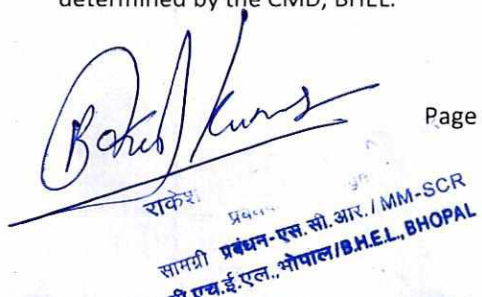 determined by the CMD, BHEL.
Page
राकेश
सामग्री प्रबंधन-एस.सी.आर. / MM-SCR
एच.ई.एल., भोपाल/B.H.E.L., BHOPAL